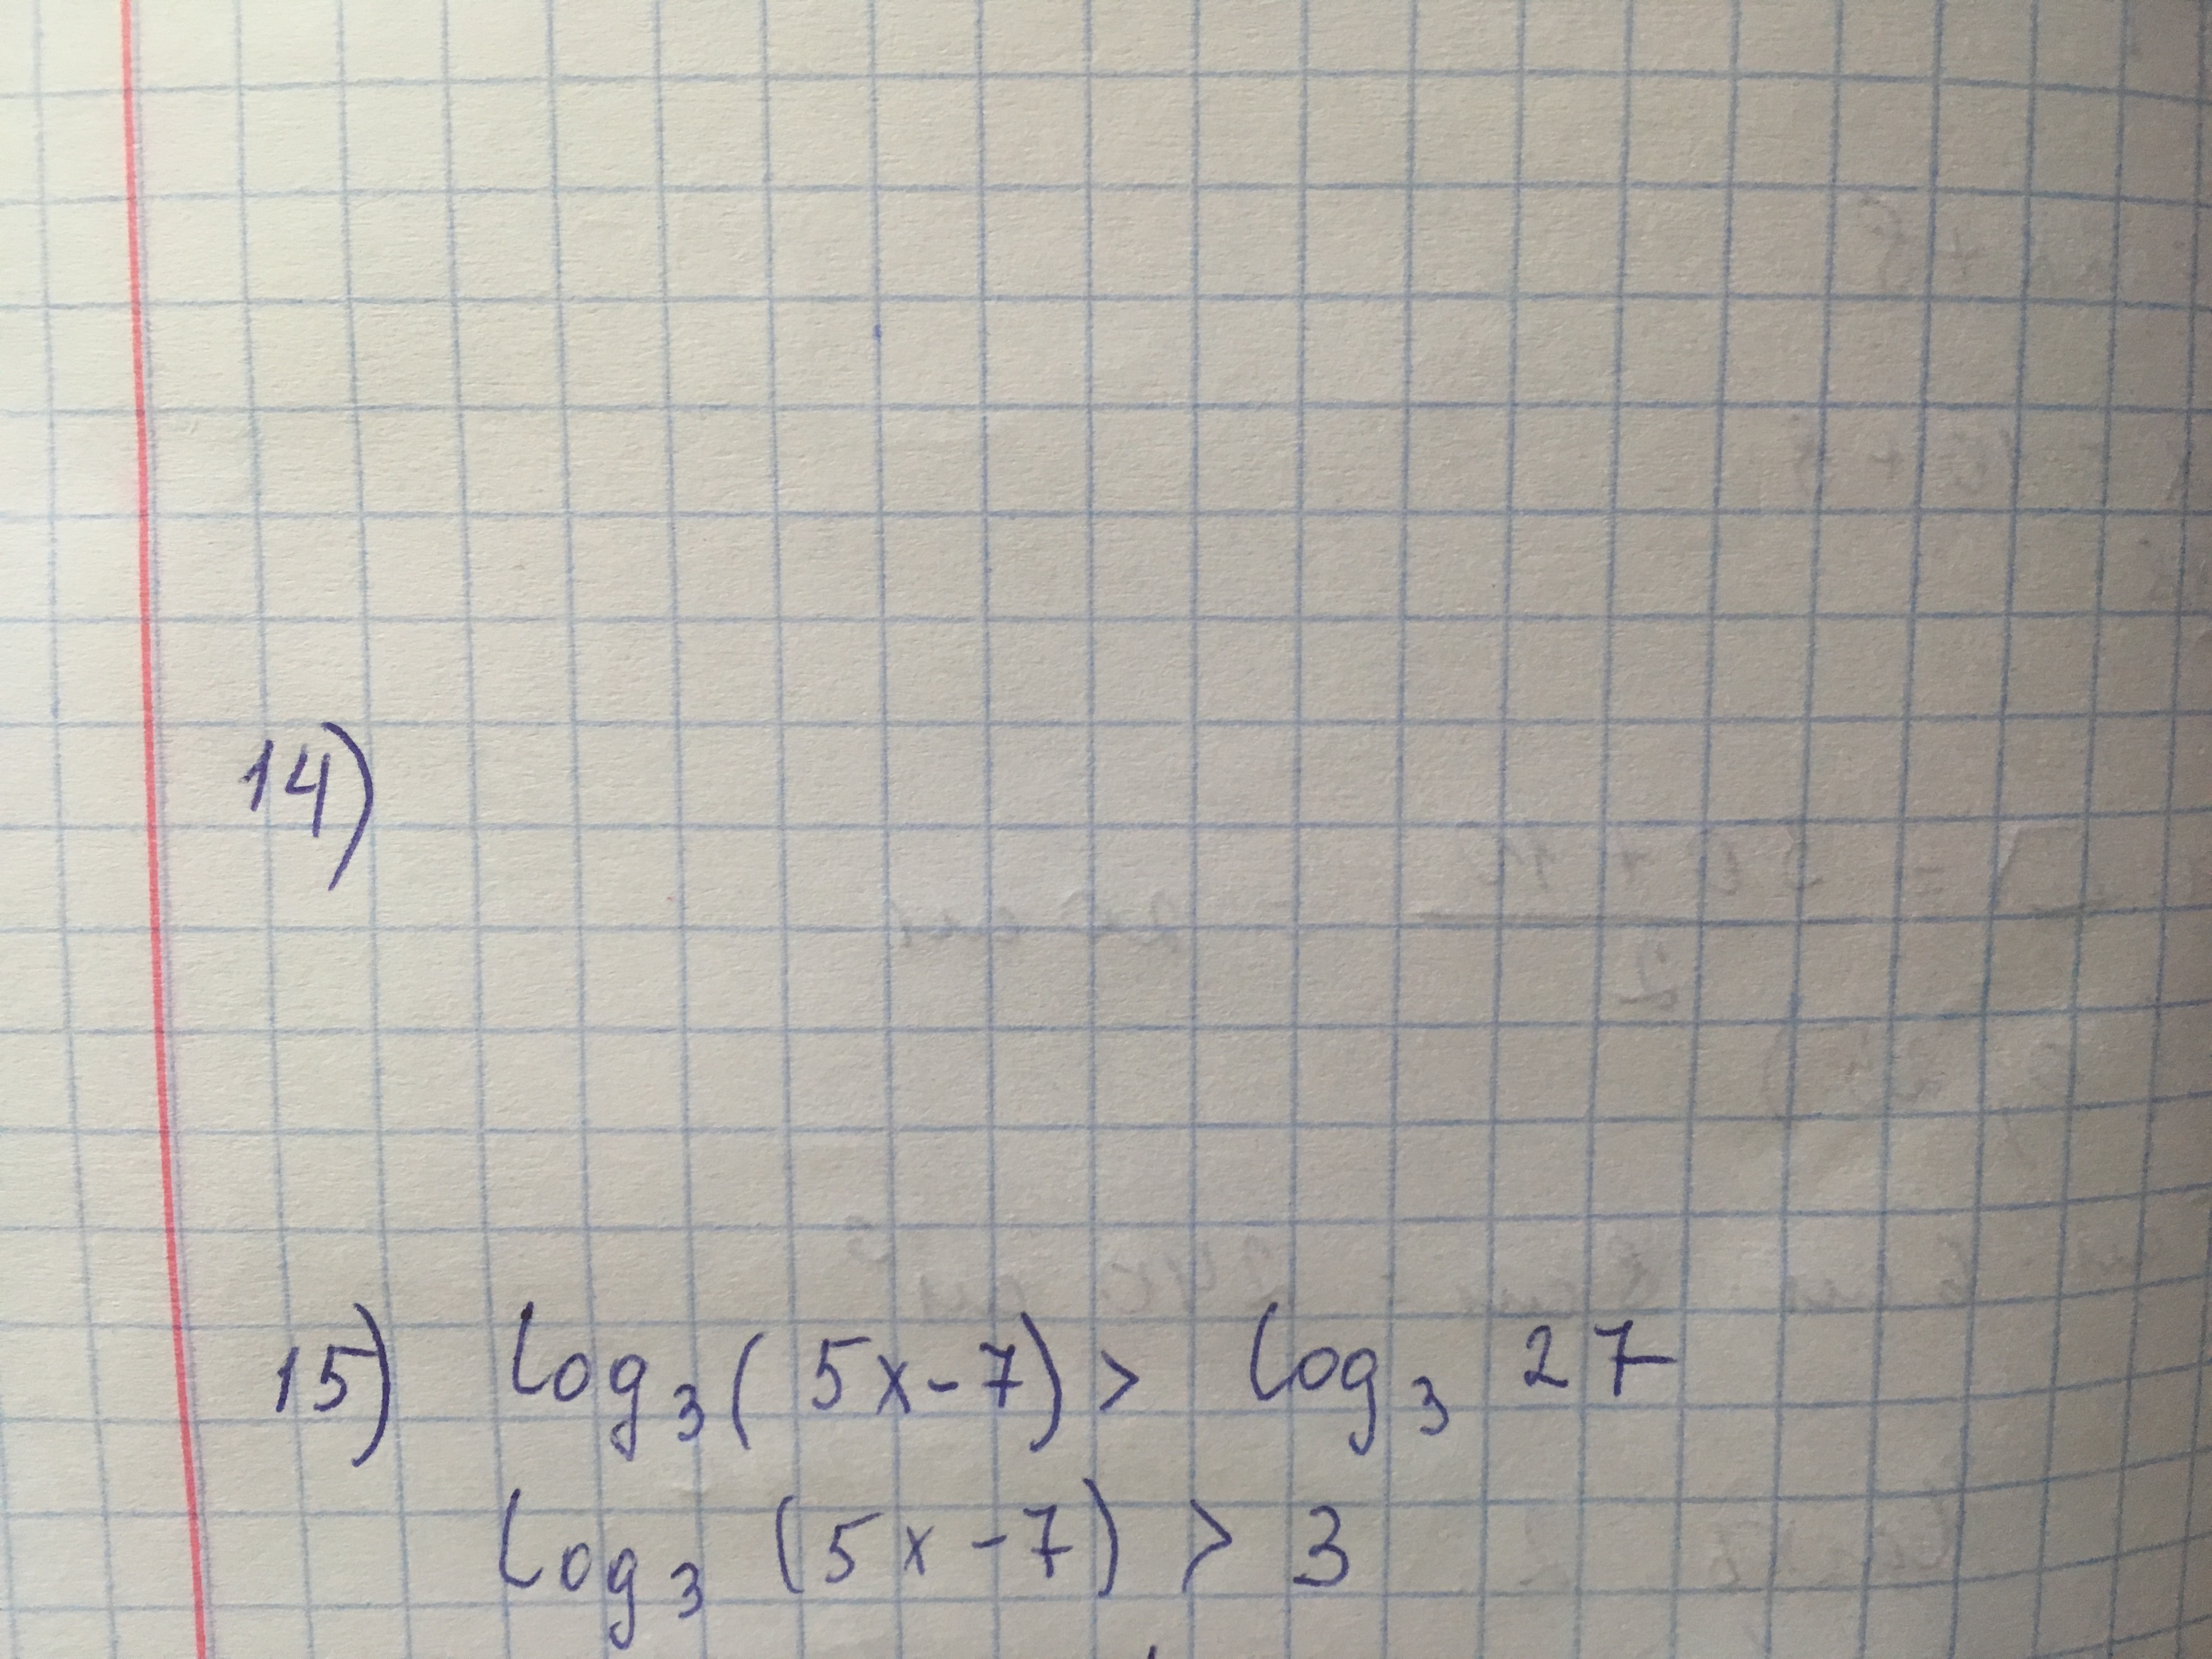 14)
15) log₃(5x-7) > log₃ 27
log₃ (5x-7) > 3